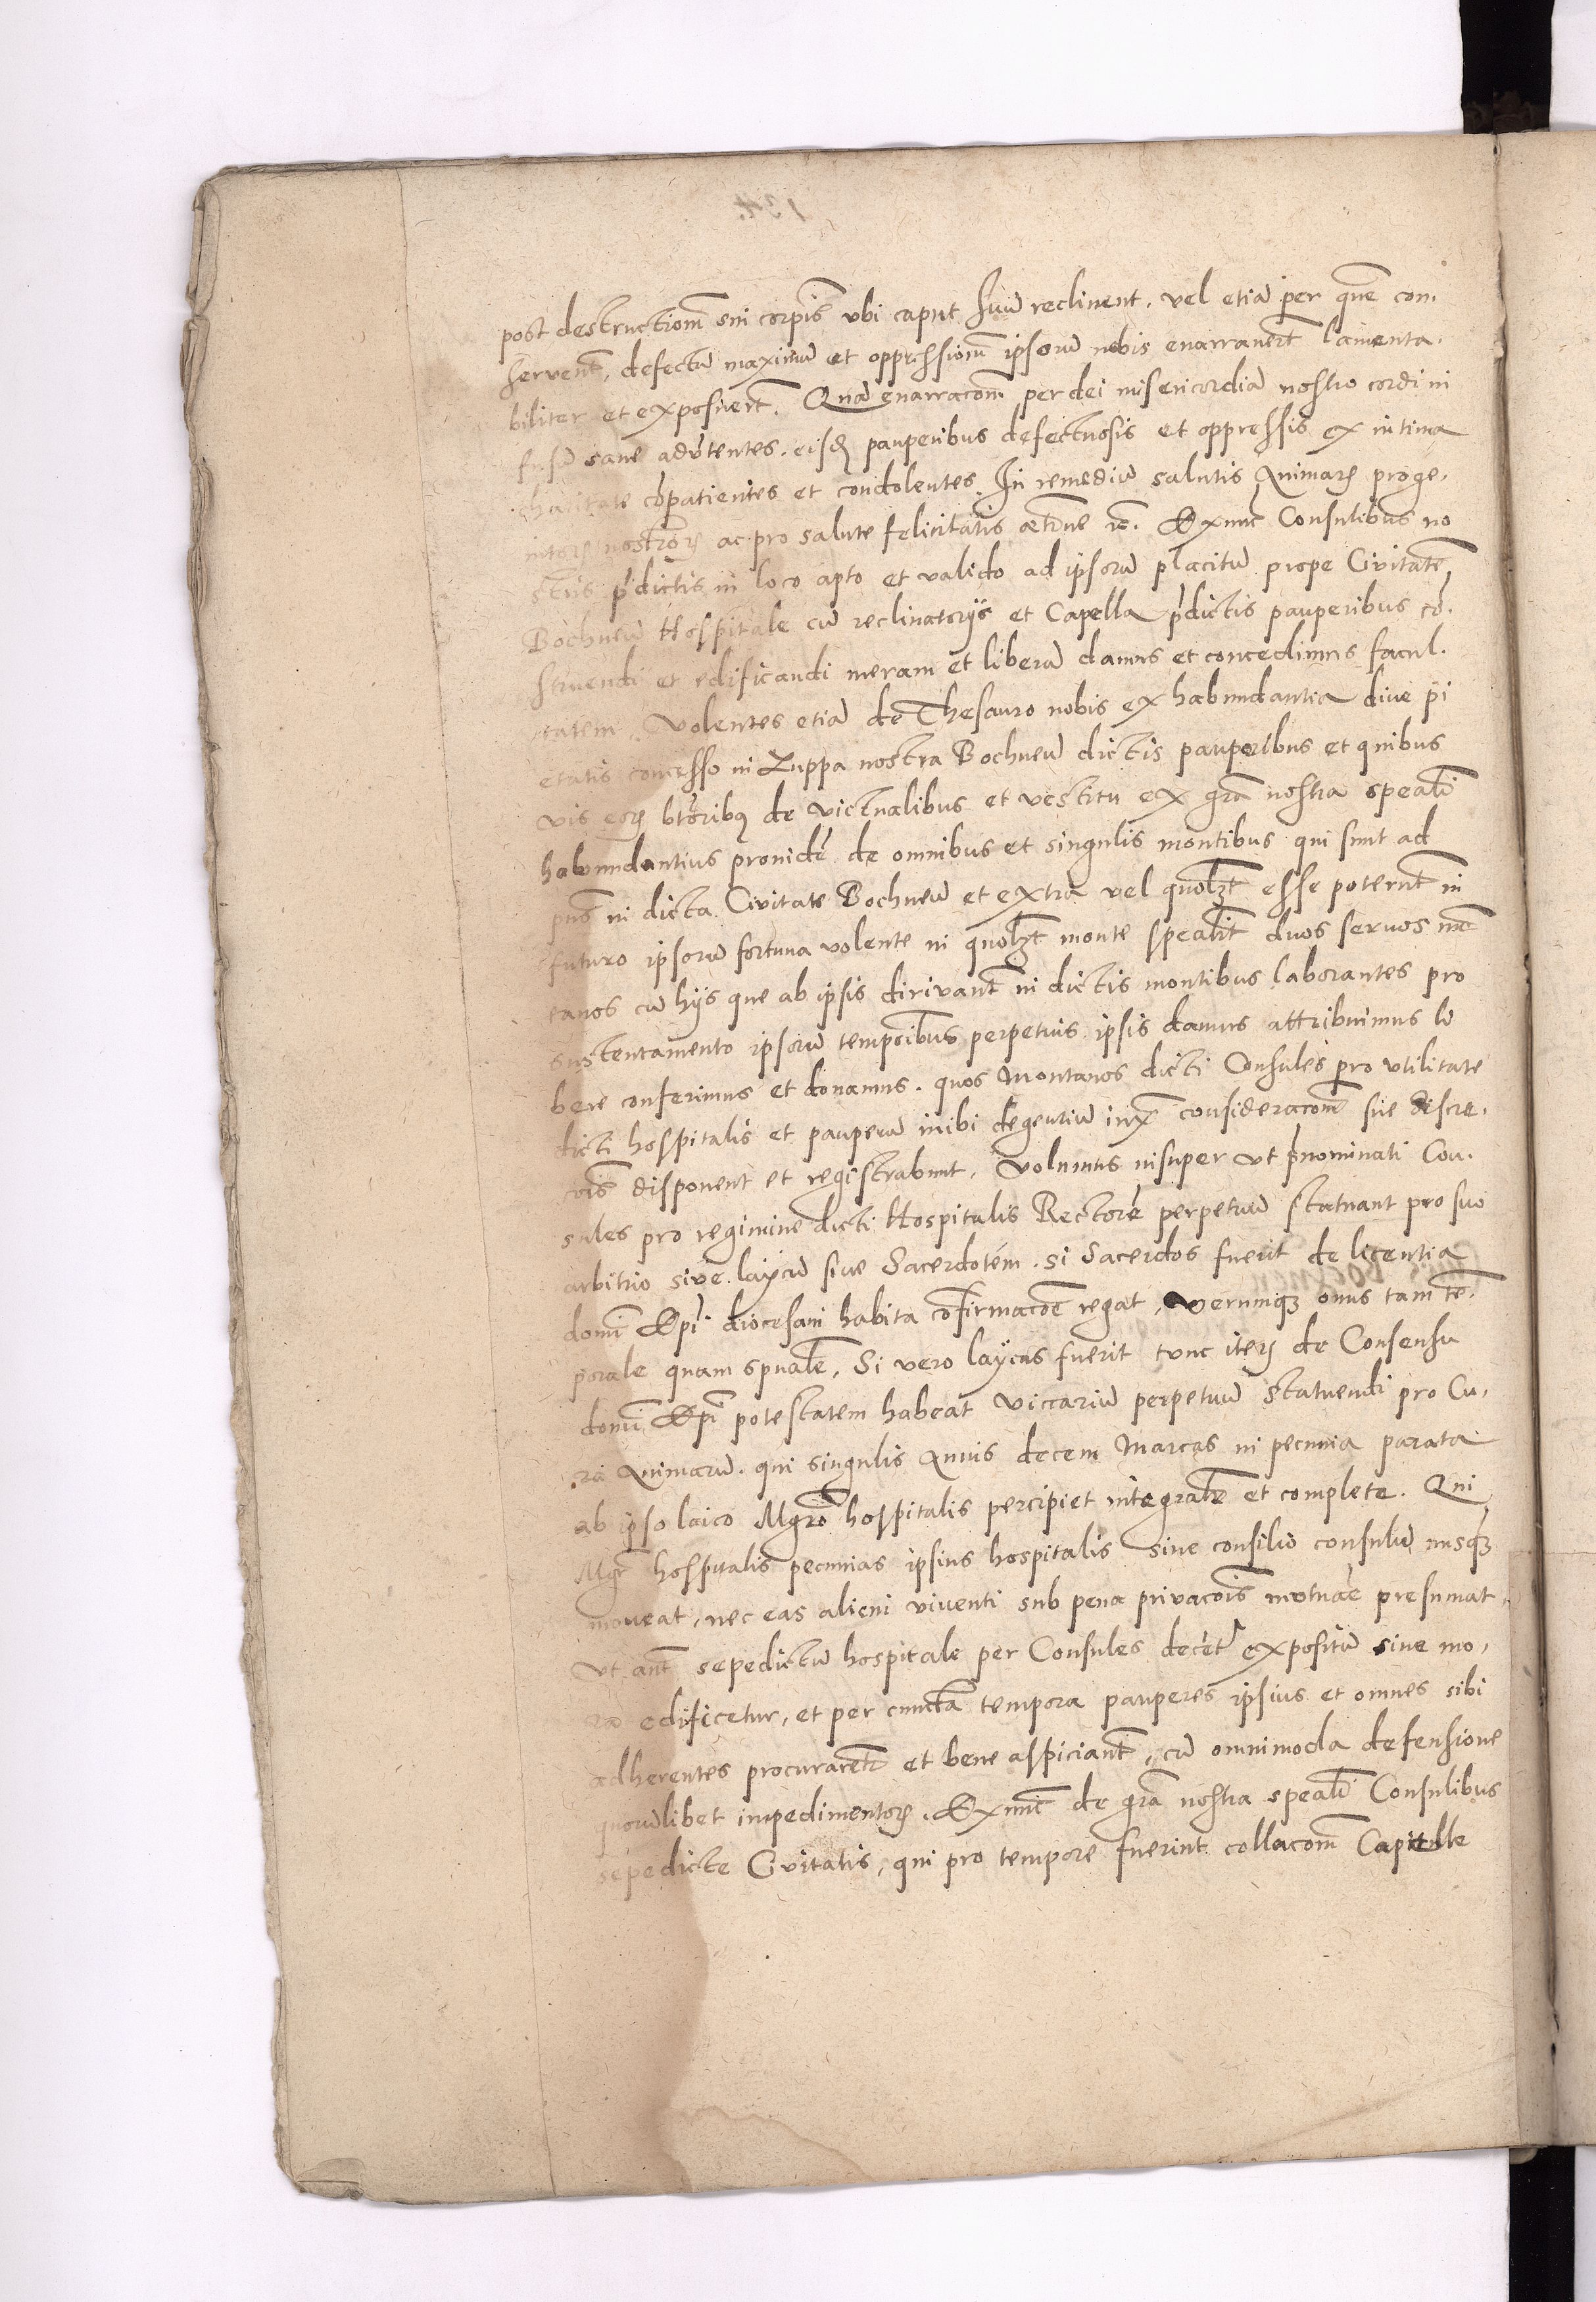 post destructionē sui corpis̄ vbi caput suū reclinent, vel etiā per quē con-
servent̄, defectū maximū et oppressionē ipsorū nobis enarraverūt lamenta-
biliter et exposuerūt. Quā enarracōem per dei misericordiā nostro cordi in
fusā sane adv̄tentes, eisdē pauperibus defectuosis et oppressis ex intima
charitate cōpatientes et condolentes, In remediū salutis Animarū proge-
nitorū nostrorū ac pro salute felicitatis aet̄ne rē. Exnunc Consulibus no
stris p̄dictis in loco apto et valido ad ipsorū placitū prope Civitatē
Bochneñ Hospitale cū reclinatorijs et Capella p̄dictis pauperibus cō-
struendi et edificandi meram et liberā damus et concedimus facul-
tatem, Volentes etiā de Thesauro nobis ex habundantia diuē pi
etatis concesso in Zuppa nostra Bochneñ dictis pauperibus et quibus
vis eorū bt̄oribꝫ de victualibus et vestitu ex grā nostra speali
habundantius providē de omnibus et singulis montibus qui sunt ad
pn̄s in dicta Civitate Bochneñ et extra vel quolꝫt esse poterunt in
futuro ipsorū fortuna volente in quolꝫt monte spealit̄ duos servos mō
tanos cū hijs que ab ipsis dirivant̄ in dictis montibus laborantes pro
sustentamento ipsorū temporibus perpetuis ipsis damus attribuimus li
bere conferimus et donamus. quos Montanos dicti Consules pro vtilitate
dicti hospitalis et pauperū inibi degentiū iuxͭ consideracōem sue discre-
cōis disponent et registrabunt. Volumus insuper vt p̄nominati Con-
sules pro regimine dicti Hospitalis Rectorē perpetuū statuant pro suo
arbitrio sive laycū sive Sacerdotem. si Sacerdos fuerit de licentia
domī Epī diocesani habita cōfirmacōe regat, verumqꝫ onus tam tē-
porale quam spūale, Si vero laycus fuerit tunc iterū de Consensu
domī Epī potestatem habeat viccariū perpetuū statuendi pro Cu-
ra Animarū. qui singulis Annis decem Marcas in pecunia parata
ab ipso laico Mgrō hospitalis percipiet integralē et complete. Qui
Mgr̄ hospitalis pecunias ipsius hospitalis sine consilio consulū nusqꝫ
moveat, nec eas alicui viventi sub pena privacōis mutuare presumat,
Vt aut̄ sepedictū hospitale per Consules decēt̄ expositū sine mo-
ra edificetur, et per cuncta tempora pauperes ipsius et omnes sibi
adherentes procurarent̄ et bene aspiciant̄, cū omnimoda defensione
quorūlibet impedimentorū. Exnunc de grā nostra speali Consulibus
sepedicte Civitatis, qui pro tempore fuerint collacōem Capelle